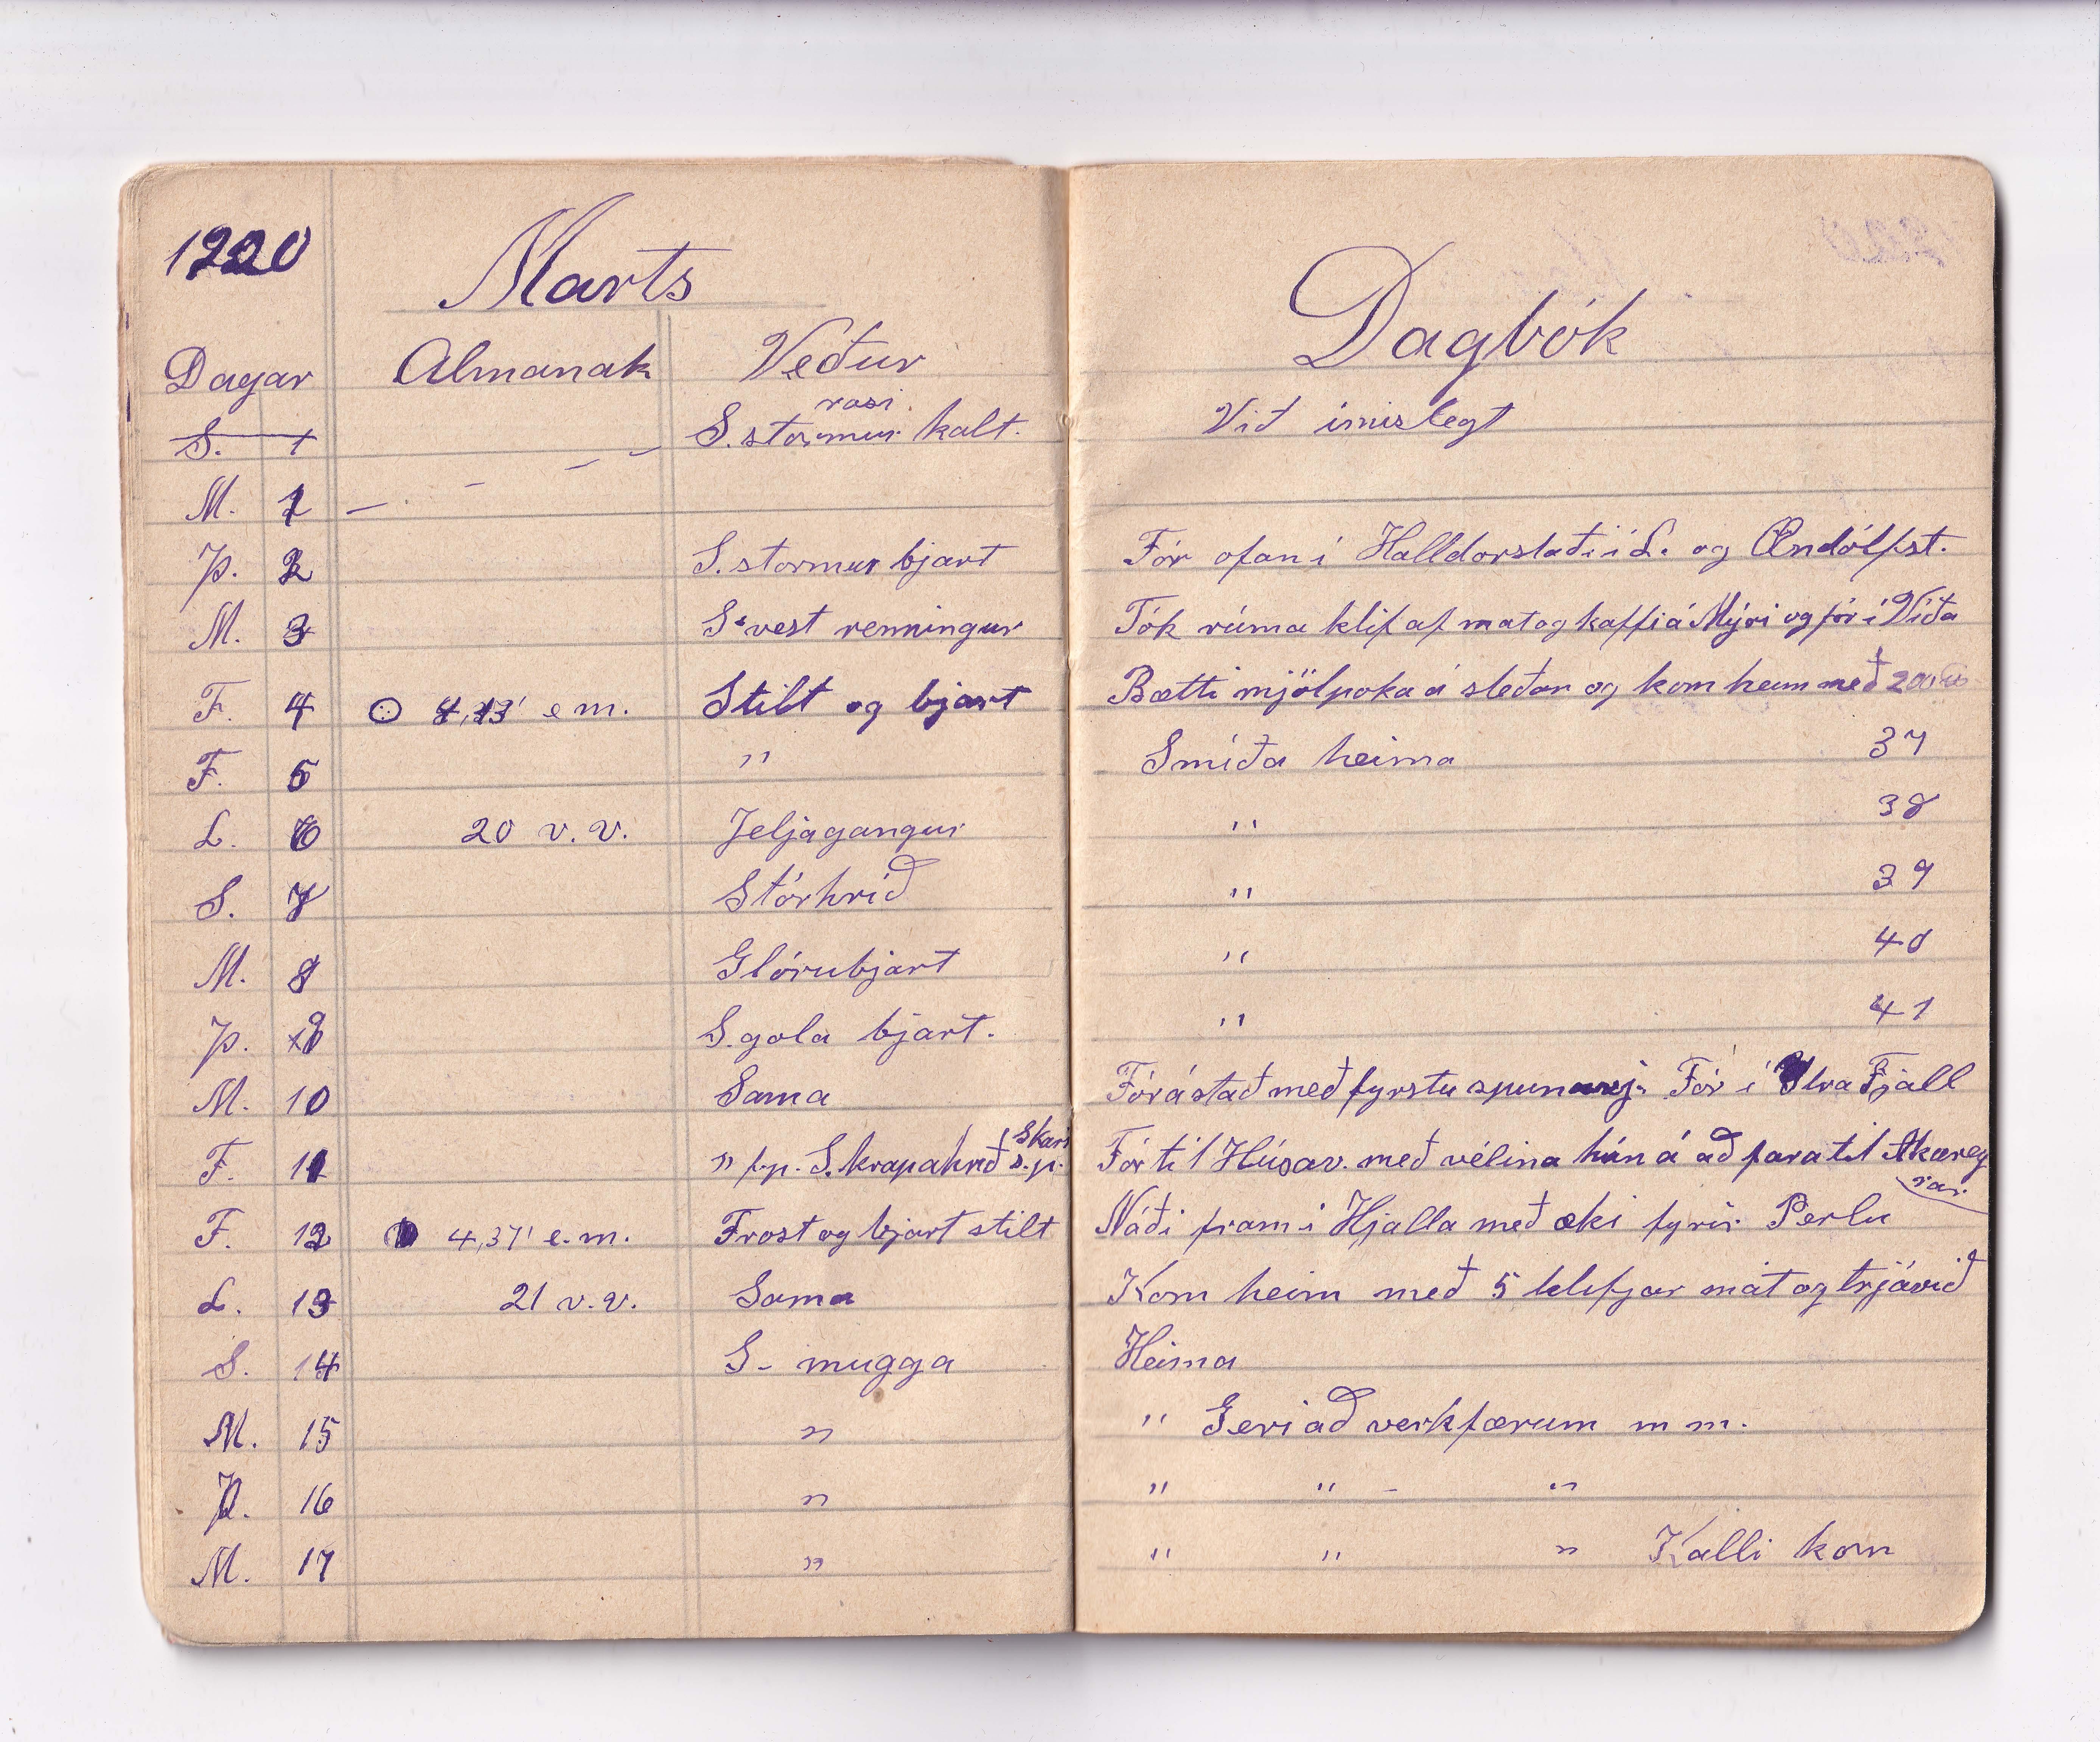 1920
Marts
Dagar Almanak Veður
S. 1 rosi
S. stormur kalt.
M. 1
Þ. 2 S. stormur bjart
M. 3 S. vest renningur
F. 4 e m. Stilt og bjart
F. 5 "
L. 6 20 v. v. Jeljagangur
S. 7 Stórhríð
M. 8 Glórubjart
Þ. 9 S. gola bjart.
M. 10 Sama
F. 11 " fp. S. krapahríð s. p.
F. 12 4,37' e. m. Frost og bjart stilt
L. 13 21 v. v. Sama
S. 14 S- mugga
M. 15 "
Þ. 16 "
M. 17 "
Dagbók
Við ímislegt
Fór ofan í Halldorstaði í L. og Öndólfst.
Tók rúma klif af mat og kaffi á Mýri og fór í Víða
Bætti mjölpoka á sleðan og kom heim með 200
Smíða heima 37
" 38
" 39
" 40
" 41
Fór á stað með fyrstu Fór í Ytra Fjall
Fór til Húsav. með vélina hún á að fara til Akureyrar
Náði fram í Hjalla með æki fyrir Perlu
Kom heim með 5 klifjar mat og trjávið
Heima
" Geri að verkfærum m m.
" " - "
" " " Kalli kom